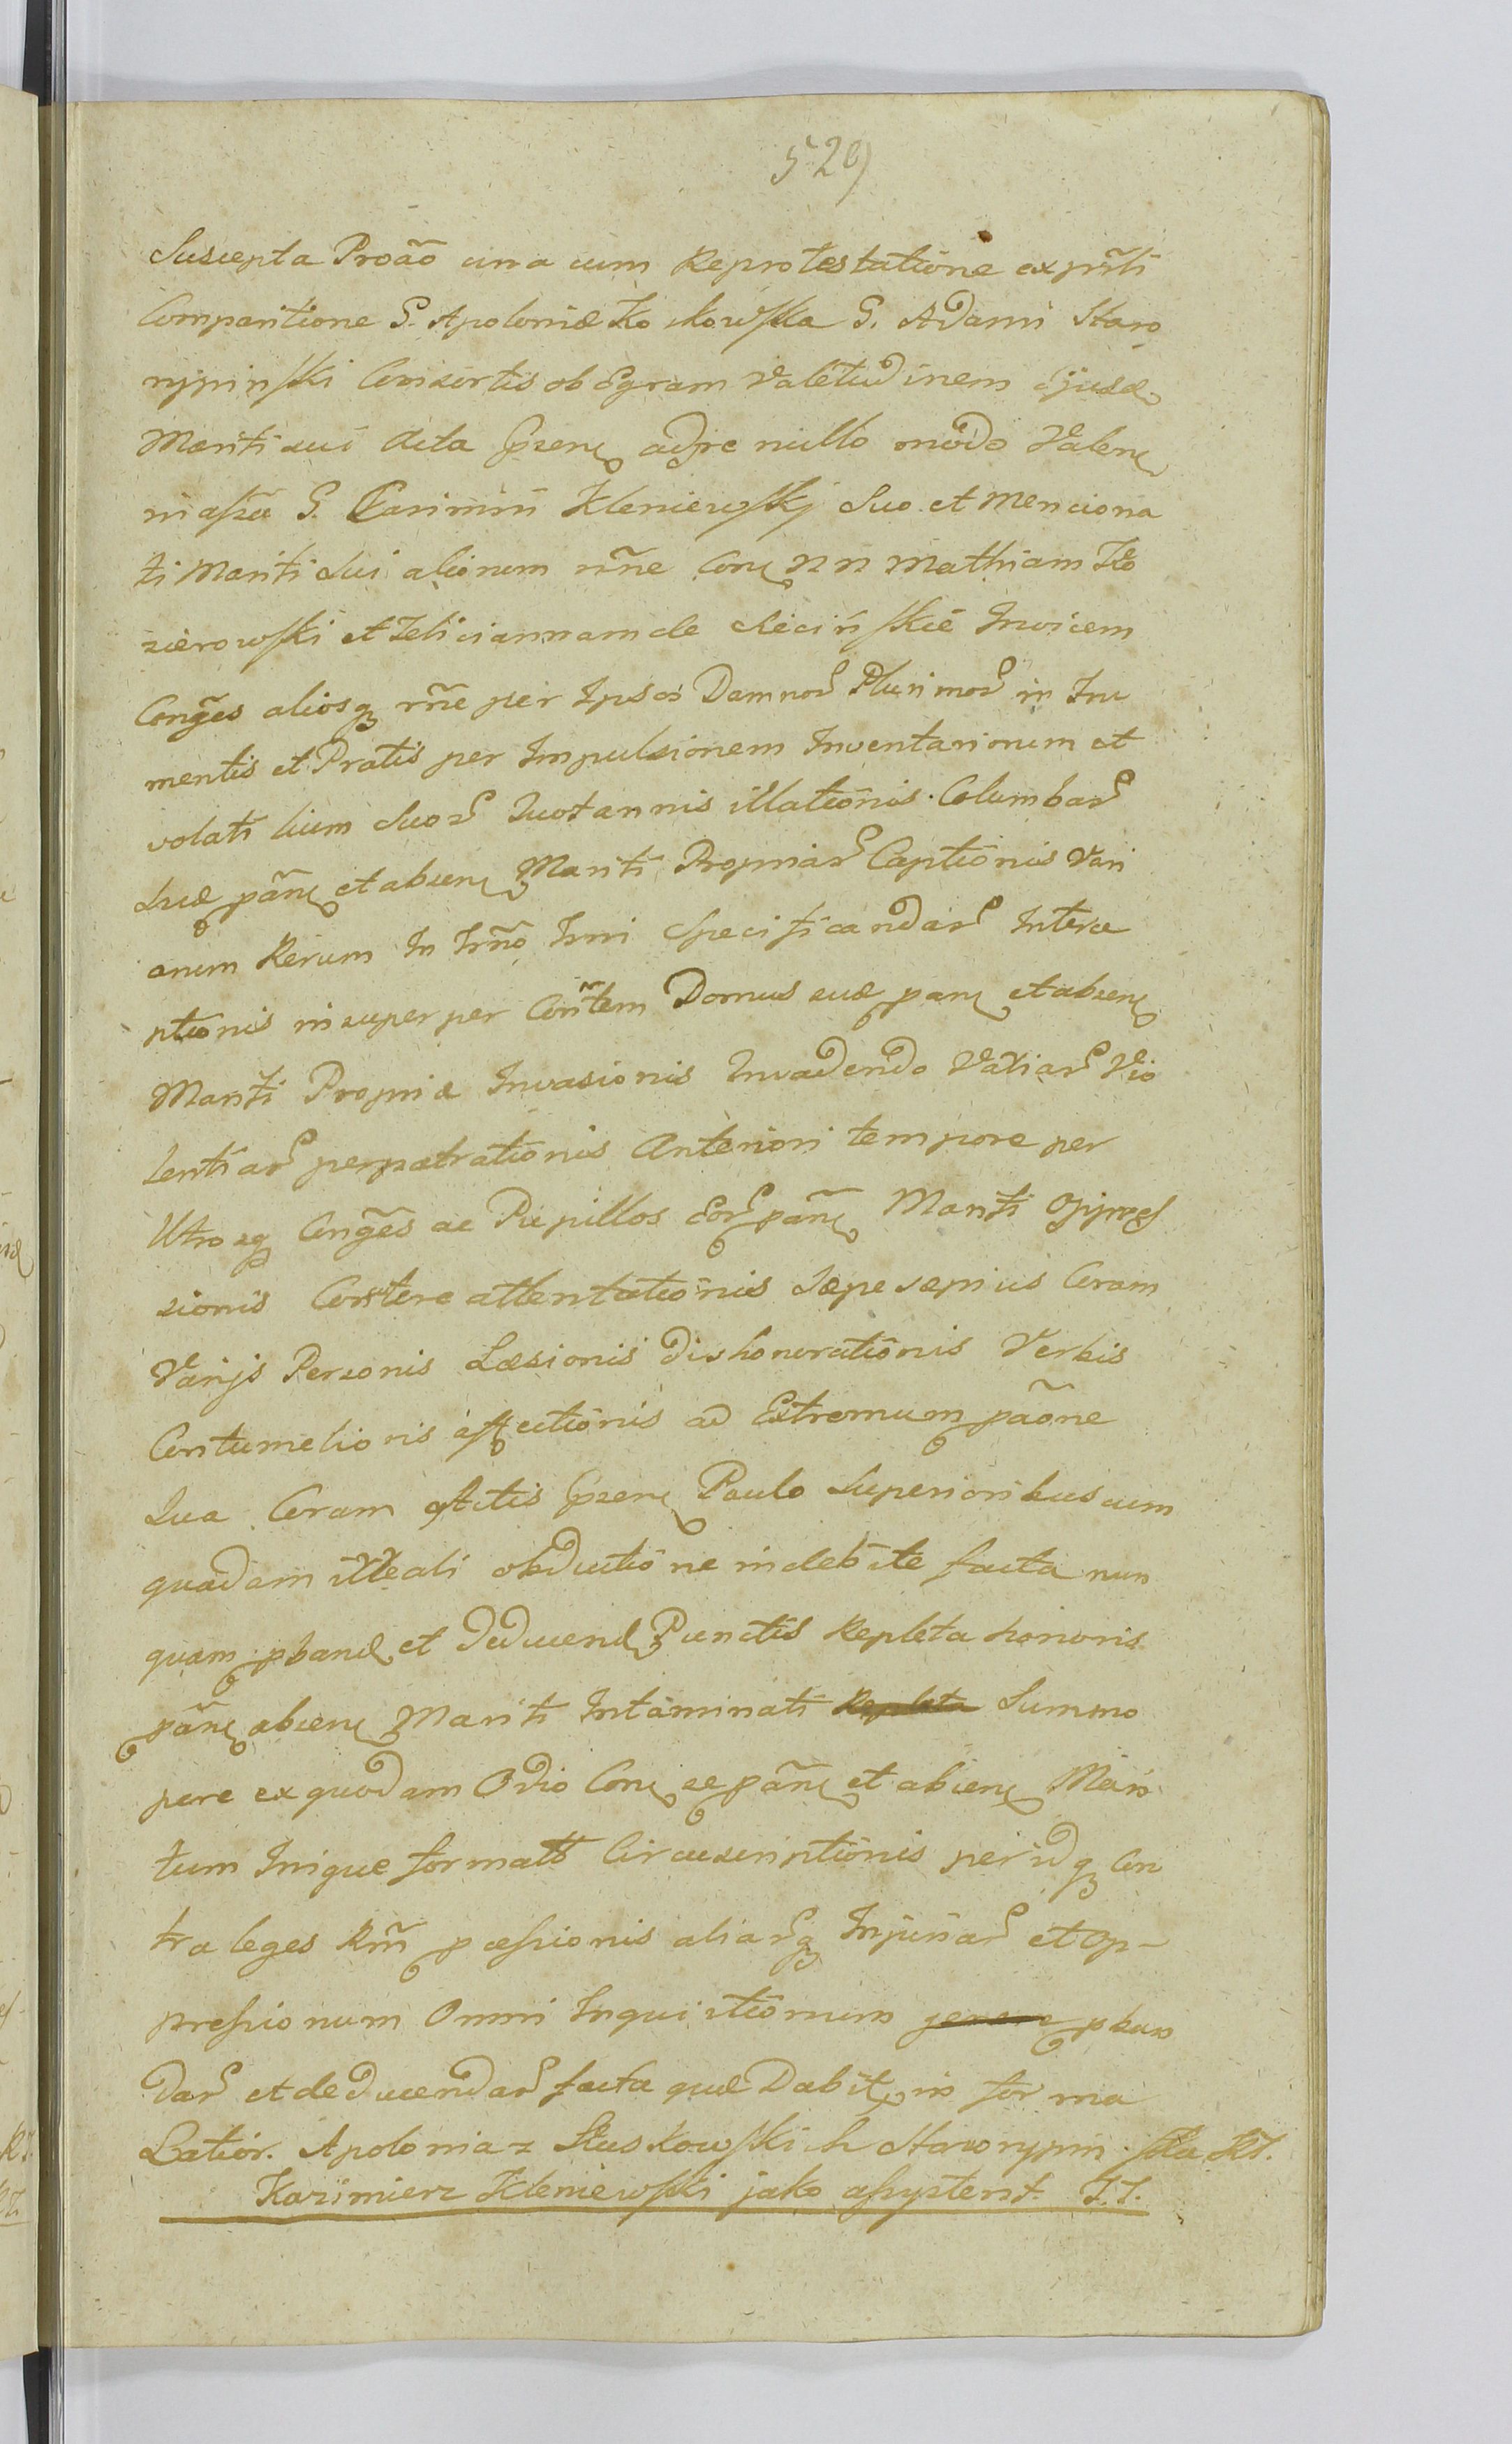 529
Suscepta Proão una cum Reprotestatione ex prñti
Comparitione G. Apoloniæ Ko kowska G. Adami Staro
rypinski Consortis ob Egram Valetudinem Ejusd
Mariti sui Acta Præsen adire nullo modo Valen
niasza G. Casimiri Kleniewskj Suo et Menciona
ti Mariti Sui aliorum nñe Con NN Mathiam Ko
zierowski et Feliciannam de Skciń skie Invicem
Conges aliosq rñe per Ipsos Damnor Plurimor in Fru
mentis et Pratis per Impulsionem Inventariorum et
volati lium Suor Quotannis illationis. Columbar
Suæ pãn et absen Mariti Propriar Captionis Vari
arum Rerum In Trño Juri Specificandar Interce
ptionis insuper per Contem Domus suæ pan et absen
Mariti Propriæ Invasionis Invadendo Variar Vio
lentiar perpatrationis Anteriori tempore per
Utrosq Conges ac Pupillos Eor pãn Mariti Oppres
sionis Contere attentationis Sæpe sæpius Coram
Varijs Personis Læsionis dishonorationis Verbis
Contumelioris affectionis ad Extremum pãone
Sua Coram Actis Præsen Paulo Superioribus cum
quadam illeali obductione indebite facta nun
quam pband et Deducend Punctis Repleta honoris
pãn absen Mariti Intaminati Repleta Summo
pere ex quodam Odio Con se pãn et absen Mari
tum Inique format Circumscriptionis peridq Con
tra leges Rñi pcessionis aliarq Injuriar et Op-
pressionum Omni Inquisitionum genere pban
dar et deducendar facta quæ Dabit in for ma
Latior. Apolonia z Kuskowskich Starorypin ska
Kazimierz Kleniewski jako assystent